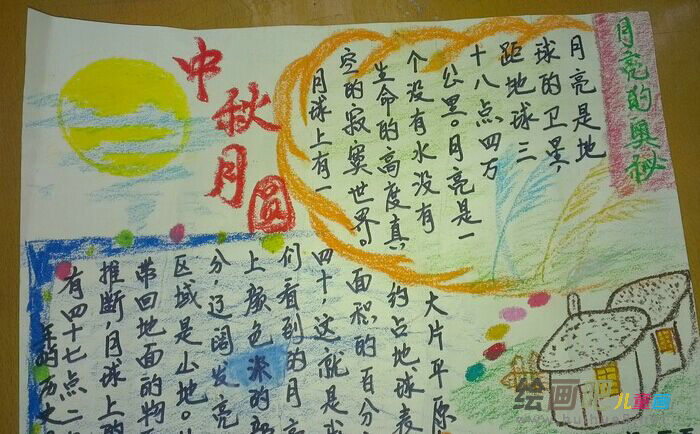 中秋月圆
月亮的奥秘
月亮是地
球的卫星，
距地球三
十八点四万
公里。月亮是一
个没有水没有
生命的高度真
空的寂寞世界。
月球上有一
大片平原
约占地球表
面积的百分
四十，这就是我
们看到的月亮
上颜色深的部
分，辽阔发亮
区域是山地。
带回地面的物
推断，月球上的
有四十七点二
年的历史
绘画吧儿童画